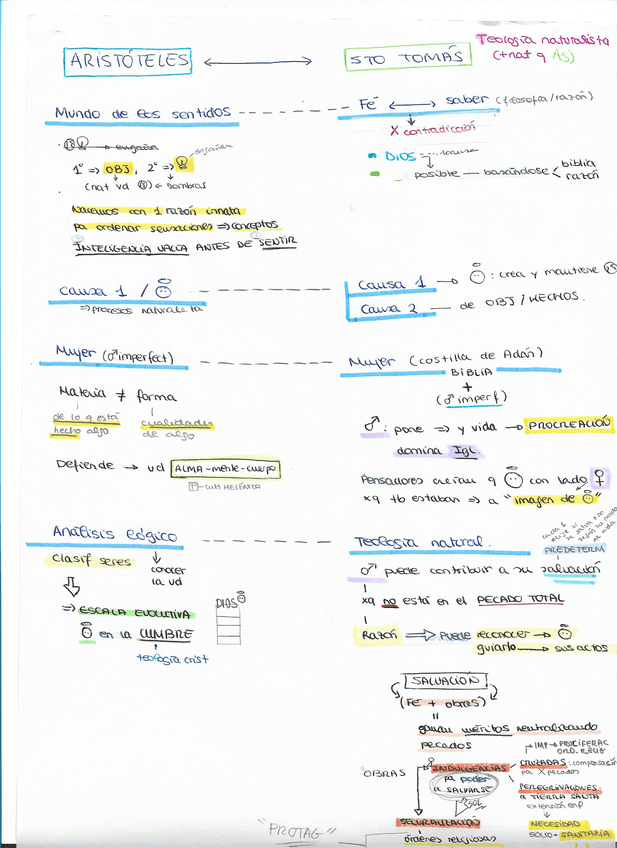 ARISTÓTELES
STO TOMÁS
Teología naturalista
(+nat q As)
Mundo de los sentidos
engañan
1º => OBJ, 2º =>
engañan
(nat vd ) sombras
Nacemos con 1 razón innata
pa ordenar sensaciones => conceptos
INTELIGENCIA VACÍA ANTES DE SENTIR
Fé saber (filosofía/razón)
X contradicción
DIOS
posible — basándose biblia
razón
Causa 1 /
=> procesos naturaleza
Causa 1 : crea y mantiene
Causa 2 de OBJ / HECHOS.
Mujer (♂ imperfect)
Materia ≠ forma
de lo q está cualidades
hecho algo de algo
Defiende → ud ALMA-mente-cuerpo
cult HELÉNICA
Mujer (costilla de Adán)
BIBLIA
+
(♂ imperf)
♂: pone => y vida → PROCREACIÓN
domina Igl.
Pensadores creían q con lado ♀
xq tb estaban => a "imagen de "
Análisis lógico
Clasif seres conocer
la vd
=> ESCALA EVOLUTIVA
en la CUMBRE
teología crist
DIOS
Teología natural.
PREDETERM
♂ puede contribuir a su salvación
xq no está en el PECADO TOTAL
Razón => Puede reconocer →
guiarlo → sus actos
SALVACIÓN
(Fé + obras)
=
ganan méritos neutralizando
pecados
OBRAS
INDULGENCIAS
pa poder
a SALVARSE
SOL
IMP → PROLIFERAC
ORD. RELIG
CRUZADAS: compensación
pa X pecados
PEREGRINACIONES
a TIERRA SANTA
extensión enf
NECESIDAD
SOCIO-SANITARIA
SECULARIZACIÓN
órdenes religiosas
"PROTAG"